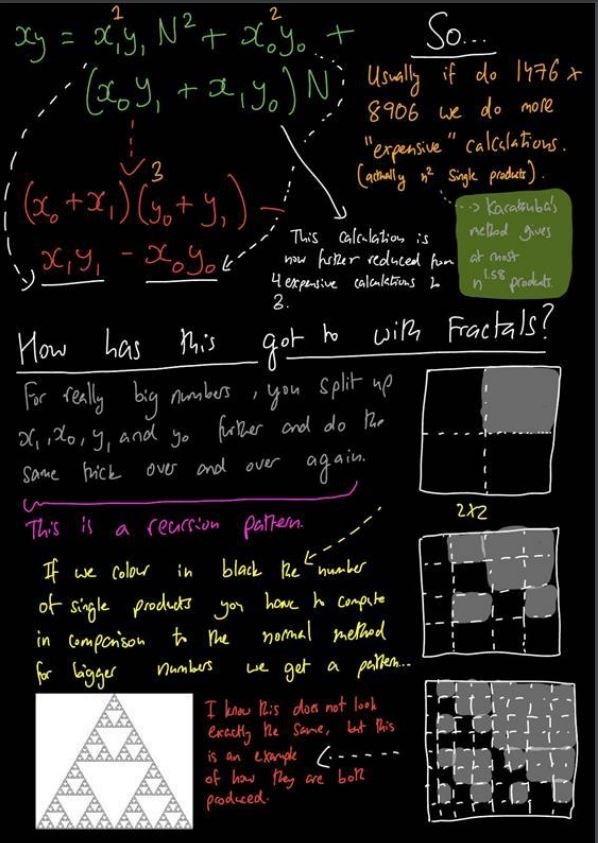 1 2
xy = x₁y₁ N² + x₀y₀ +
(x₀y₁ + x₁y₀) N
3
(x₀ + x₁)(y₀ + y₁) –
x₁y₁ - x₀y₀
So...
Usually if do 1476 x
8906 we do more
"expensive" calculations.
(actually n² single products).
--> Karatsuba's
method gives
at most
n^1.58 products.
This calculation is
now further reduced from
4 expensive calculations to
3.
How has this got to with Fractals?
For really big numbers, you split up
x₁, x₀, y₁ and y₀ further and do the
same trick over and over again.
This is a recursion pattern.
2x2
If we colour in black the number
of single products you have to compute
in comparison to the normal method
for bigger numbers we get a pattern...
I know this does not look
exactly the same, but this
is an example
of how they are both
produced.